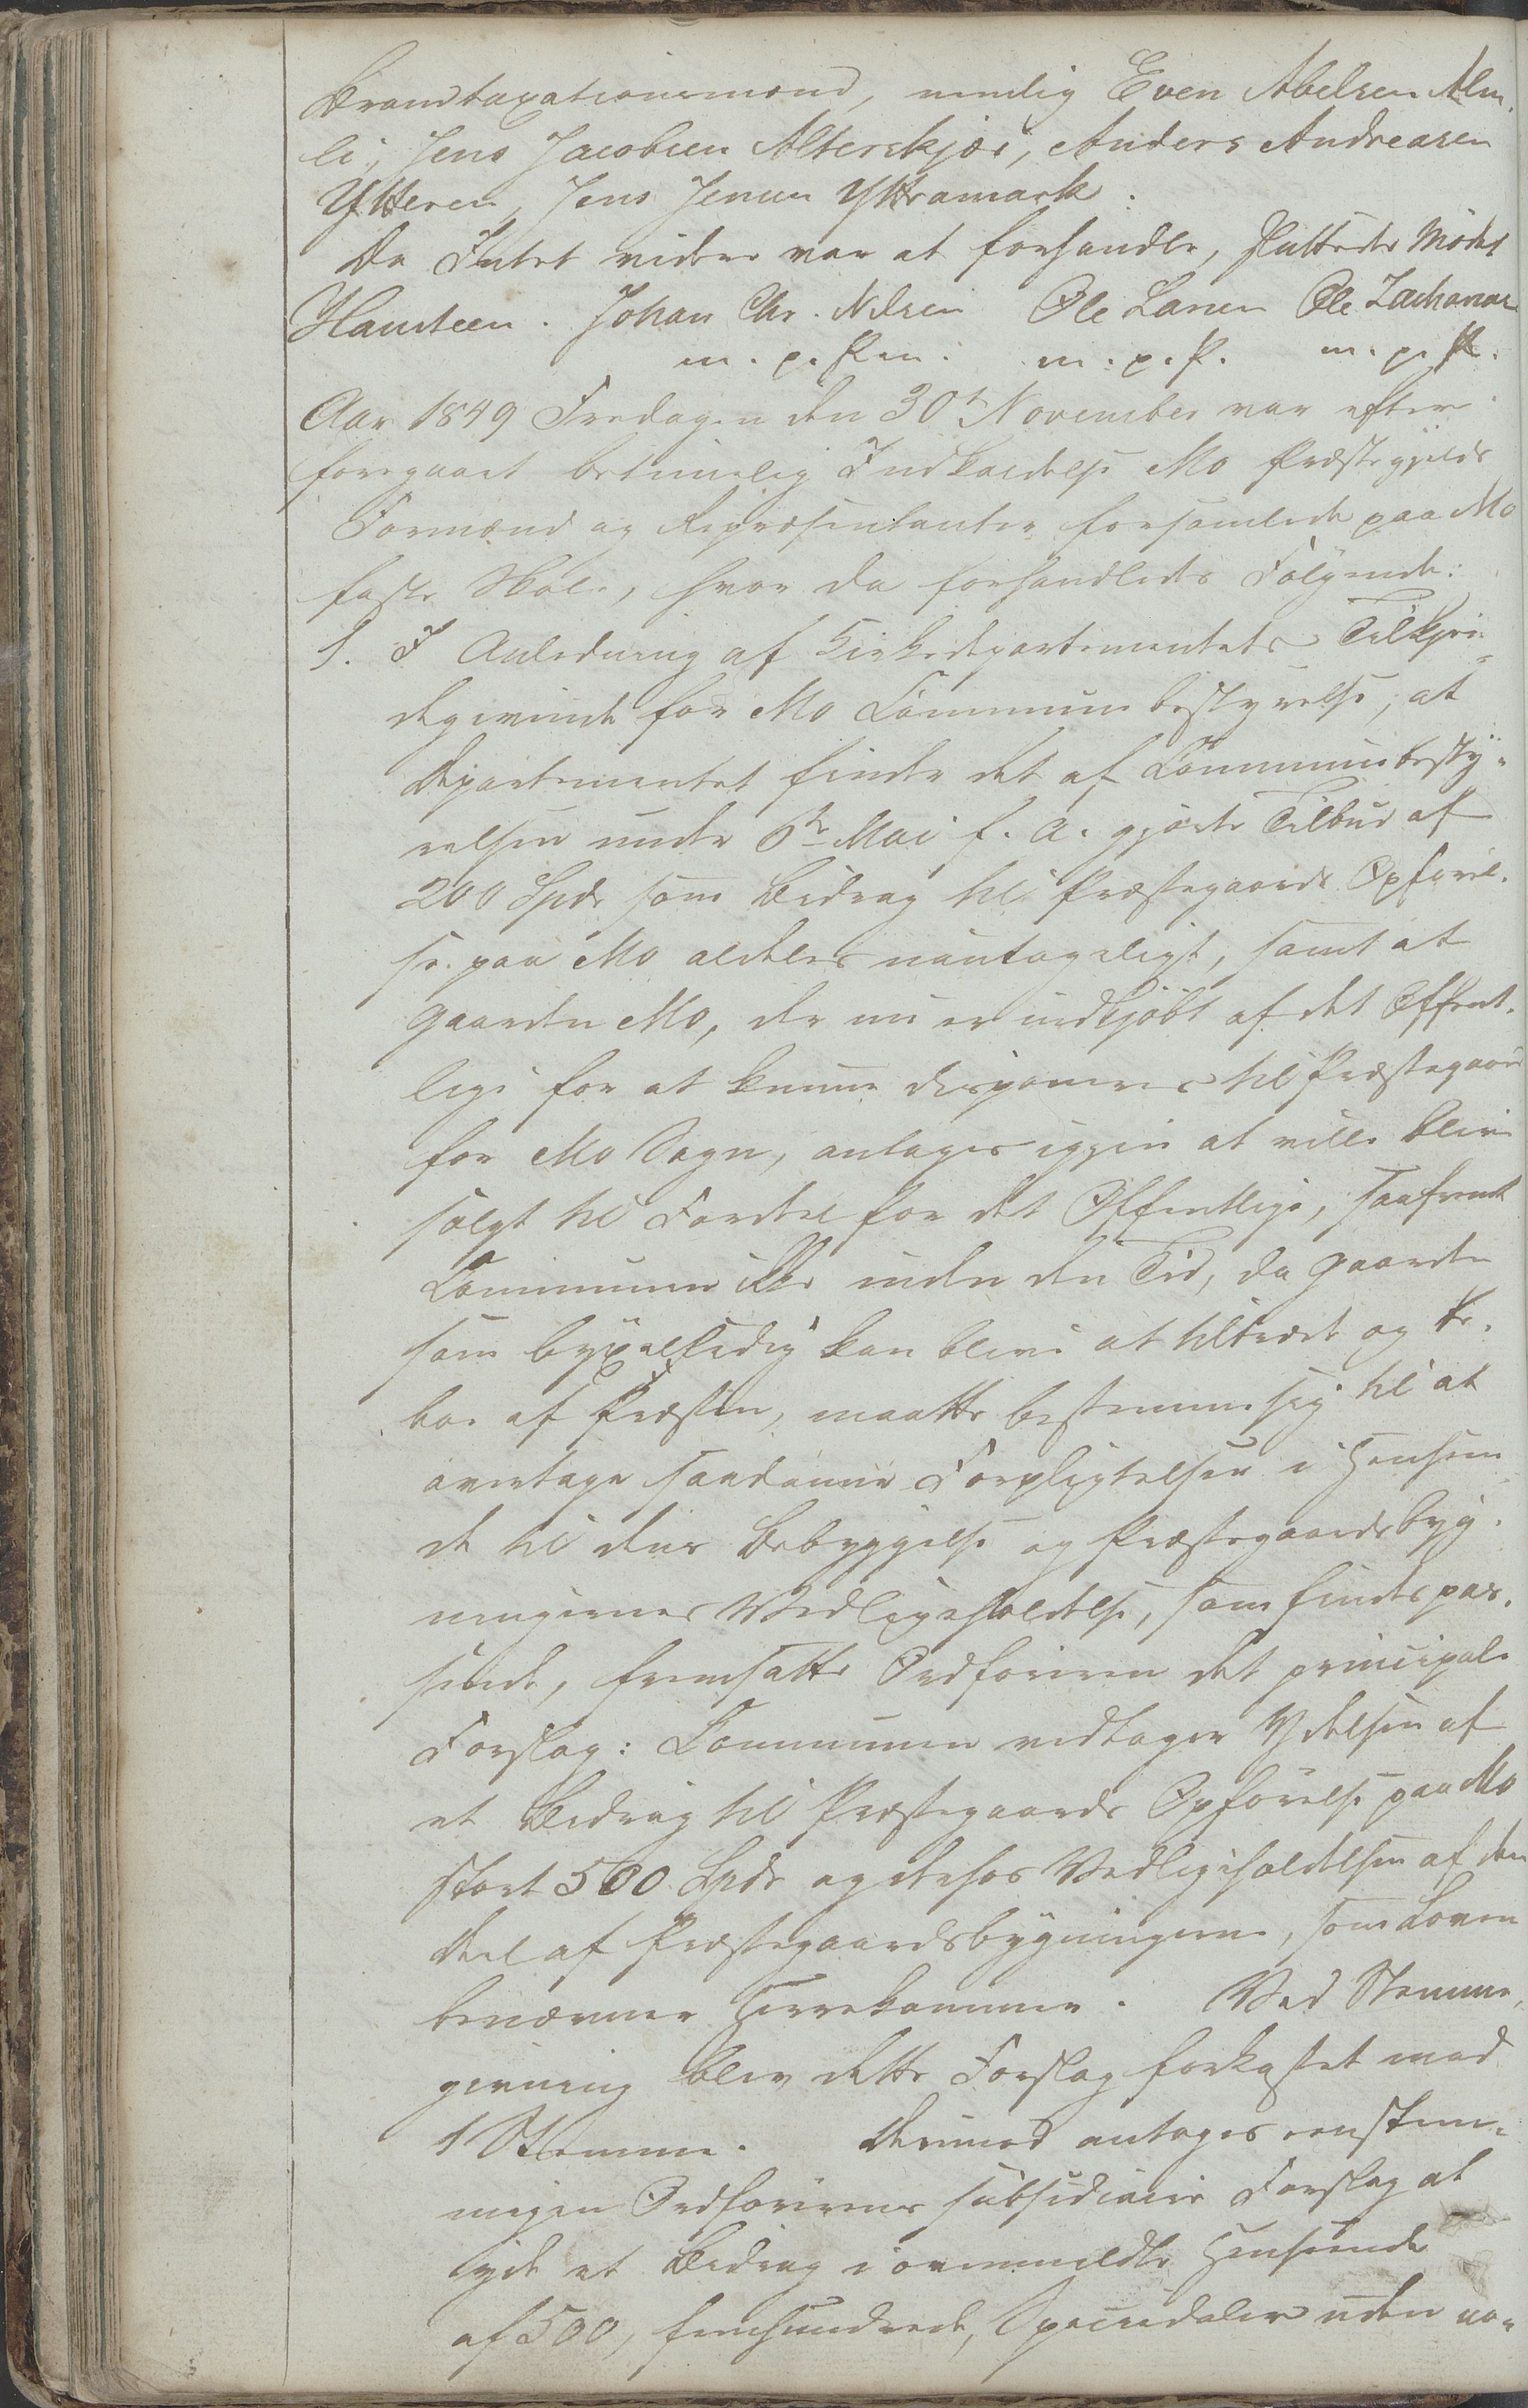 Brandtaxationsmænd, nemlig Even Abelsen Alm-
li, Jens Jacobsen Alterskjær, Anders Andreasen
Ytteren, Jens Jensen Yttramark.
Da Intet videre var at forhandle, sluttedes Mødet
Hansteen. Johan Chr. Nilsen Ole Larsen Ole Zacharias
m. p. P. m. p. P. m. p. P.
Aar 1849 Fredagen den 30te November var efter
foregaaet betimelig Indkaldelse Mo Præstegjelds
Formænd og Repræsentanter forsamlede paa Mo
faste Skole, hvor da forhandledes Følgende:
1. I Anledning af Kirkedepartementets Tilkjen-
degivende for Mo Communebestyrelse, at
Departementet finder det af Communebesty-
relsen under 6te Mai f. A. gjorte Tilbud af
200 Spdr som Bidrag til Præstegaards Opførel-
se paa Mo aldeles uantageligt, samt at
Gaarden Mo, der nu er indkjøbt af det Offent-
lige for at kunne disponeres til Præstegaard
for Mo Sogn, antages igjen at ville blive
solgt til Fordel for det Offentlige, saafremt
Communen ikke inden den Tid, da Gaarden
som byxelledig kan blive at tiltræde og be-
boe af Præsten, maatte bestemme sig til at
overtage saadanne Forpligtelser i Henseen-
de til dens Bebyggelse og Præstegaardsbyg-
ningernes Vedligeholdelse, som findes pas-
sende, fremsatte Ordføreren det principale
Forslag: Communen vedtager Ydelsen af
et Bidrag til Præstegaards Opførelse paa Mo
stort 500 Spdr og desuden Vedligeholdelsen af den
Deel af Præstegaardsbygningerne, som Loven
benævner Herrekammer. Ved Stemme-
givning blev dette Forslag forkastet mod
1 Stemme. Derimod antoges eenstem-
migen Ordførerens subsidiære Forslag at
yde et Bidrag i ovenmeldte Henseende
af 500, femhundrede, Speciedaler uden no-